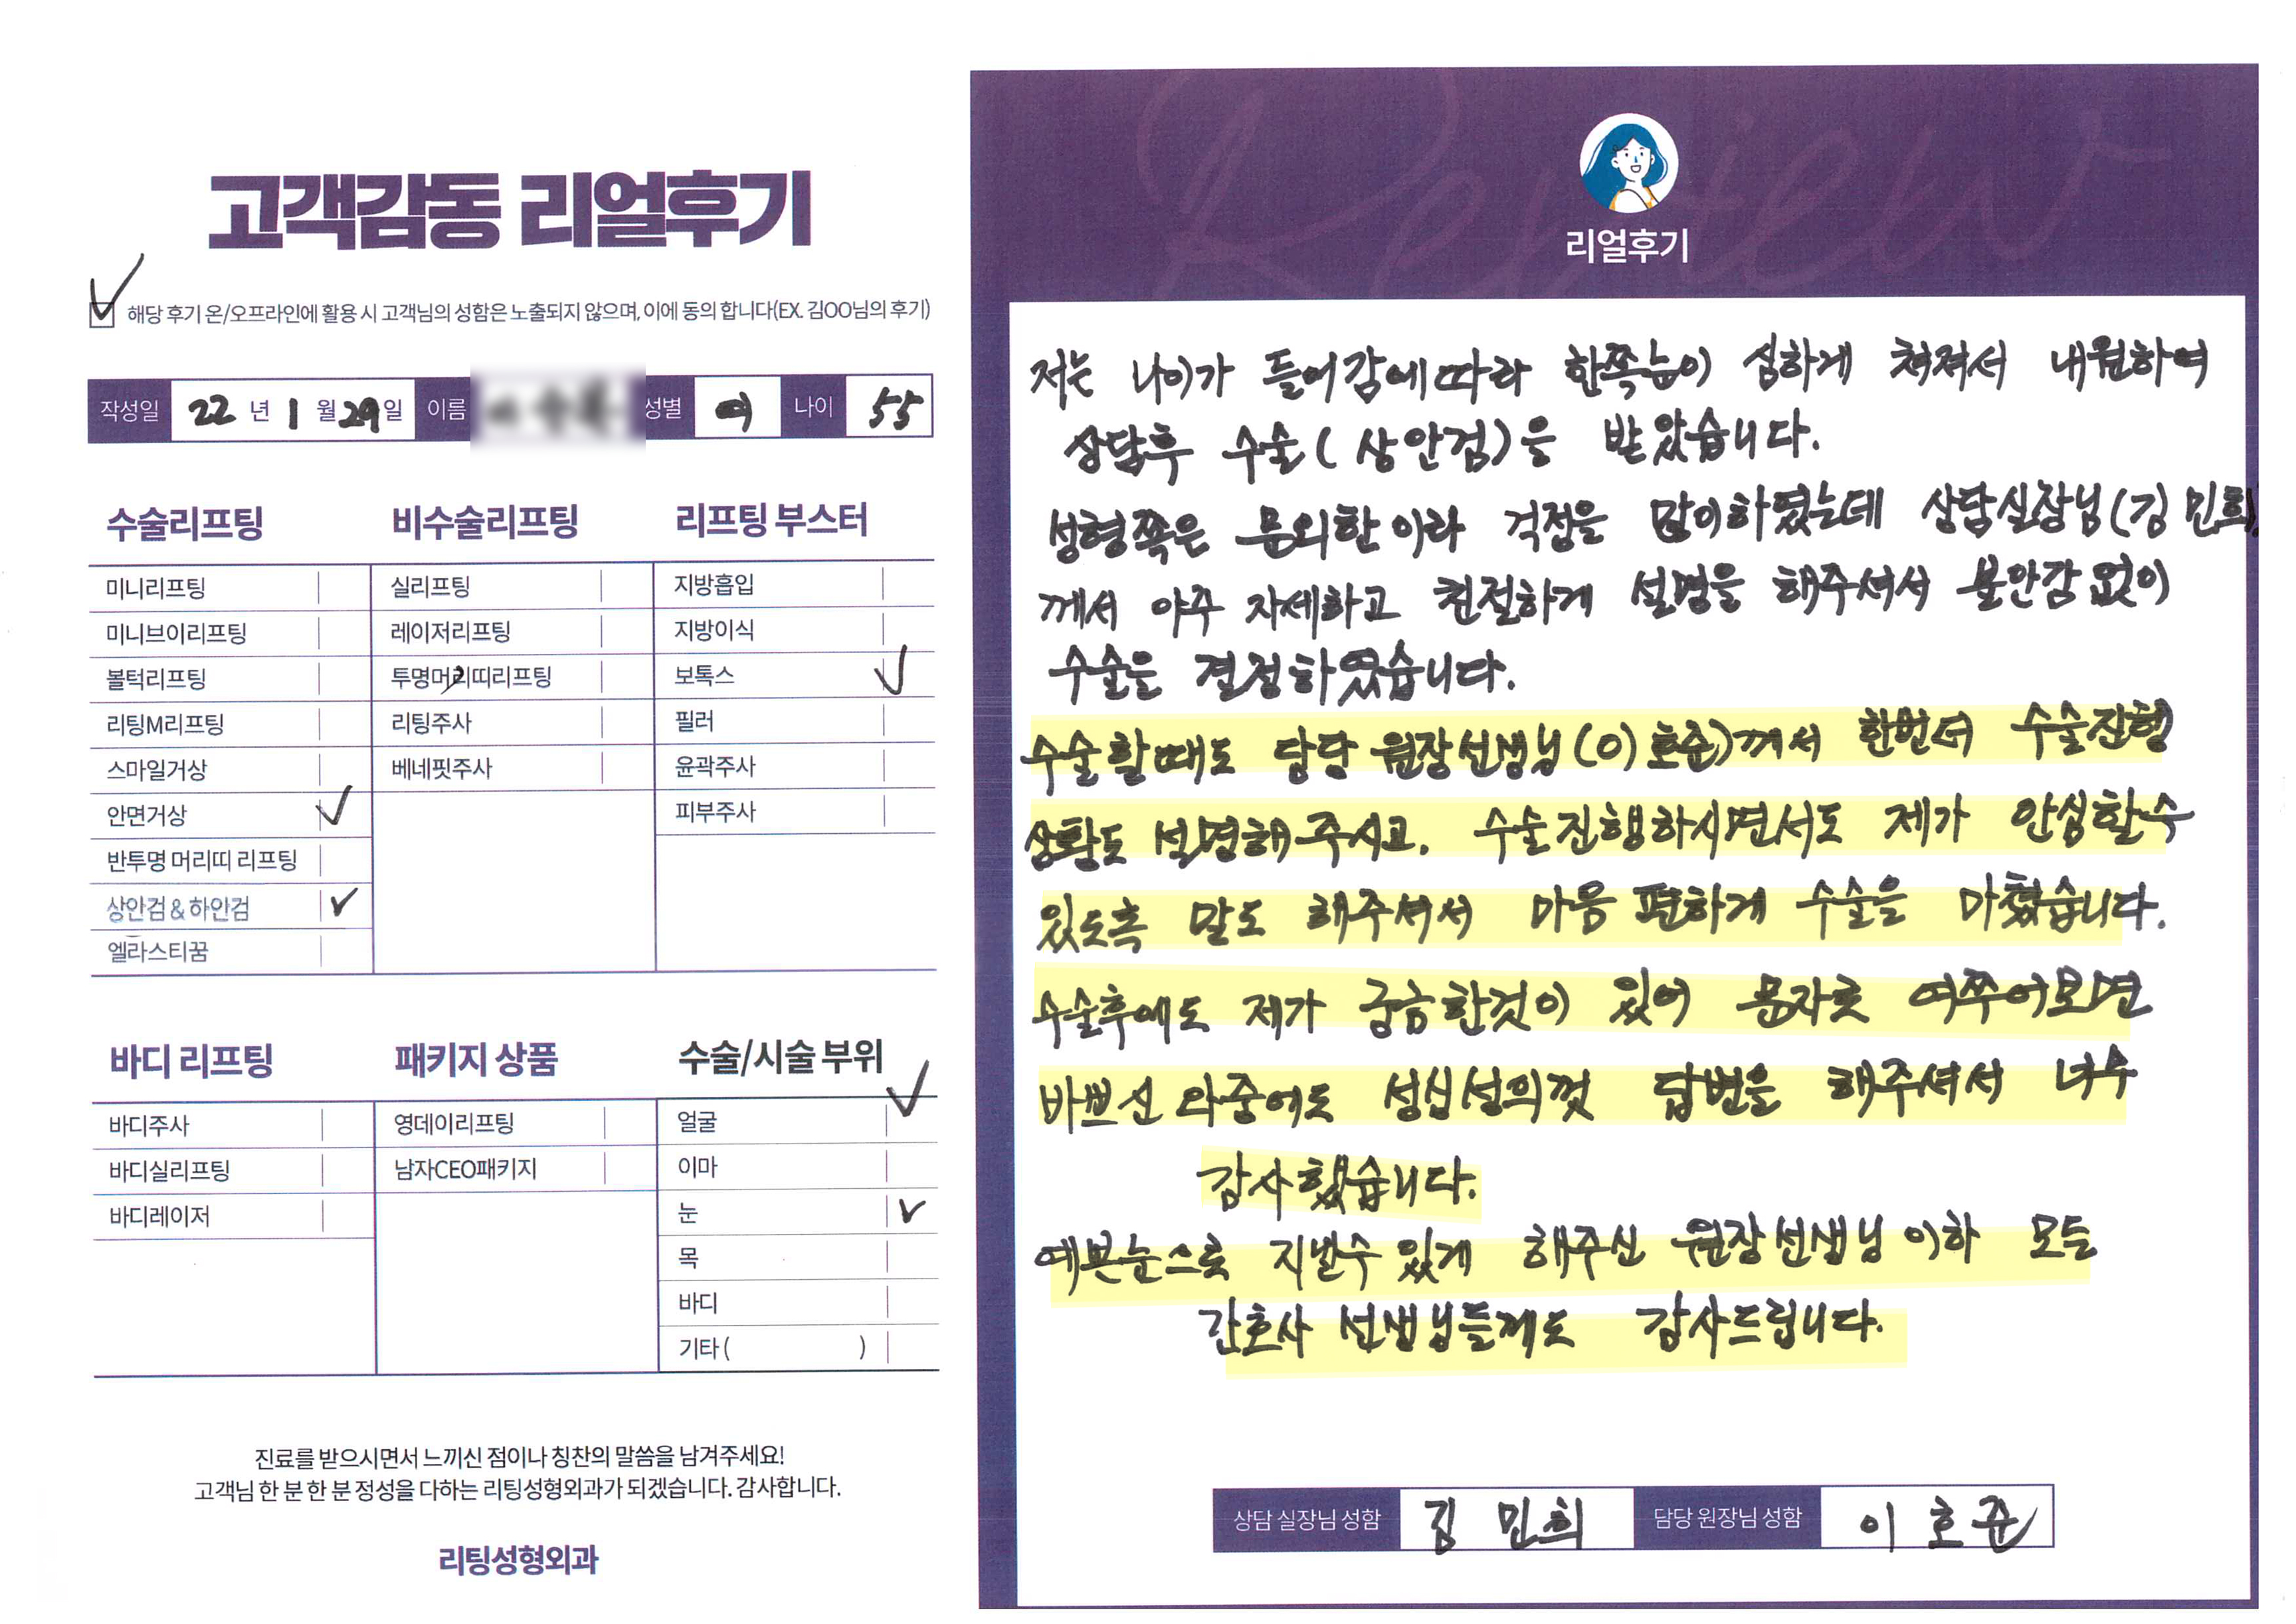 고객감동 리얼후기
해당 후기 온/오프라인에 활용 시 고객님의 성함은 노출되지 않으며, 이에 동의 합니다(EX. 김OO님의 후기)
작성일 22 년 1 월 29 일 이름 성별 여 나이 55
수술리프팅
미니리프팅
미니브이리프팅
볼턱리프팅
리팅M리프팅
스마일거상
안면거상
반투명 머리띠 리프팅
상안검 & 하안검
엘라스티꿈
비수술리프팅
실리프팅
레이저리프팅
투명머리띠리프팅
리팅주사
베네핏주사
리프팅 부스터
지방흡입
지방이식
보톡스
필러
윤곽주사
피부주사
바디 리프팅
바디주사
바디실리프팅
바디레이저
패키지 상품
영데이리프팅
남자CEO패키지
수술/시술 부위
얼굴
이마
눈
목
바디
기타 ( )
진료를 받으시면서 느끼신 점이나 칭찬의 말씀을 남겨주세요!
고객님 한 분 한 분 정성을 다하는 리팅성형외과가 되겠습니다. 감사합니다.
리팅성형외과
Review
리얼후기
저는 나이가 들어감에따라 한쪽눈이 심하게 쳐져서 내원하여
상담후 수술(상안검)을 받았습니다.
성형쪽은 문외한이라 걱정을 많이하였는데 상담실장님(김민희)
께서 아주 자세하고 친절하게 설명을 해주셔서 불안감 없이
수술을 결정하였습니다.
수술할때도 담당 원장선생님(이호준)께서 한번더 수술진행
상황도 설명해 주시고, 수술진행하시면서도 제가 안심할수
있도록 말도 해주셔서 마음 편하게 수술을 마쳤습니다.
수술후에도 제가 궁금한것이 있어 문자로 여쭈어보면
바쁘신 와중에도 성심성의껏 답변을 해주셔서 너무
감사했습니다.
예쁜눈으로 지낼수 있게 해주신 원장선생님 이하 모든
간호사 선생님들께도 감사드립니다.
상담 실장님 성함 김 민희 담당 원장님 성함 이 호준